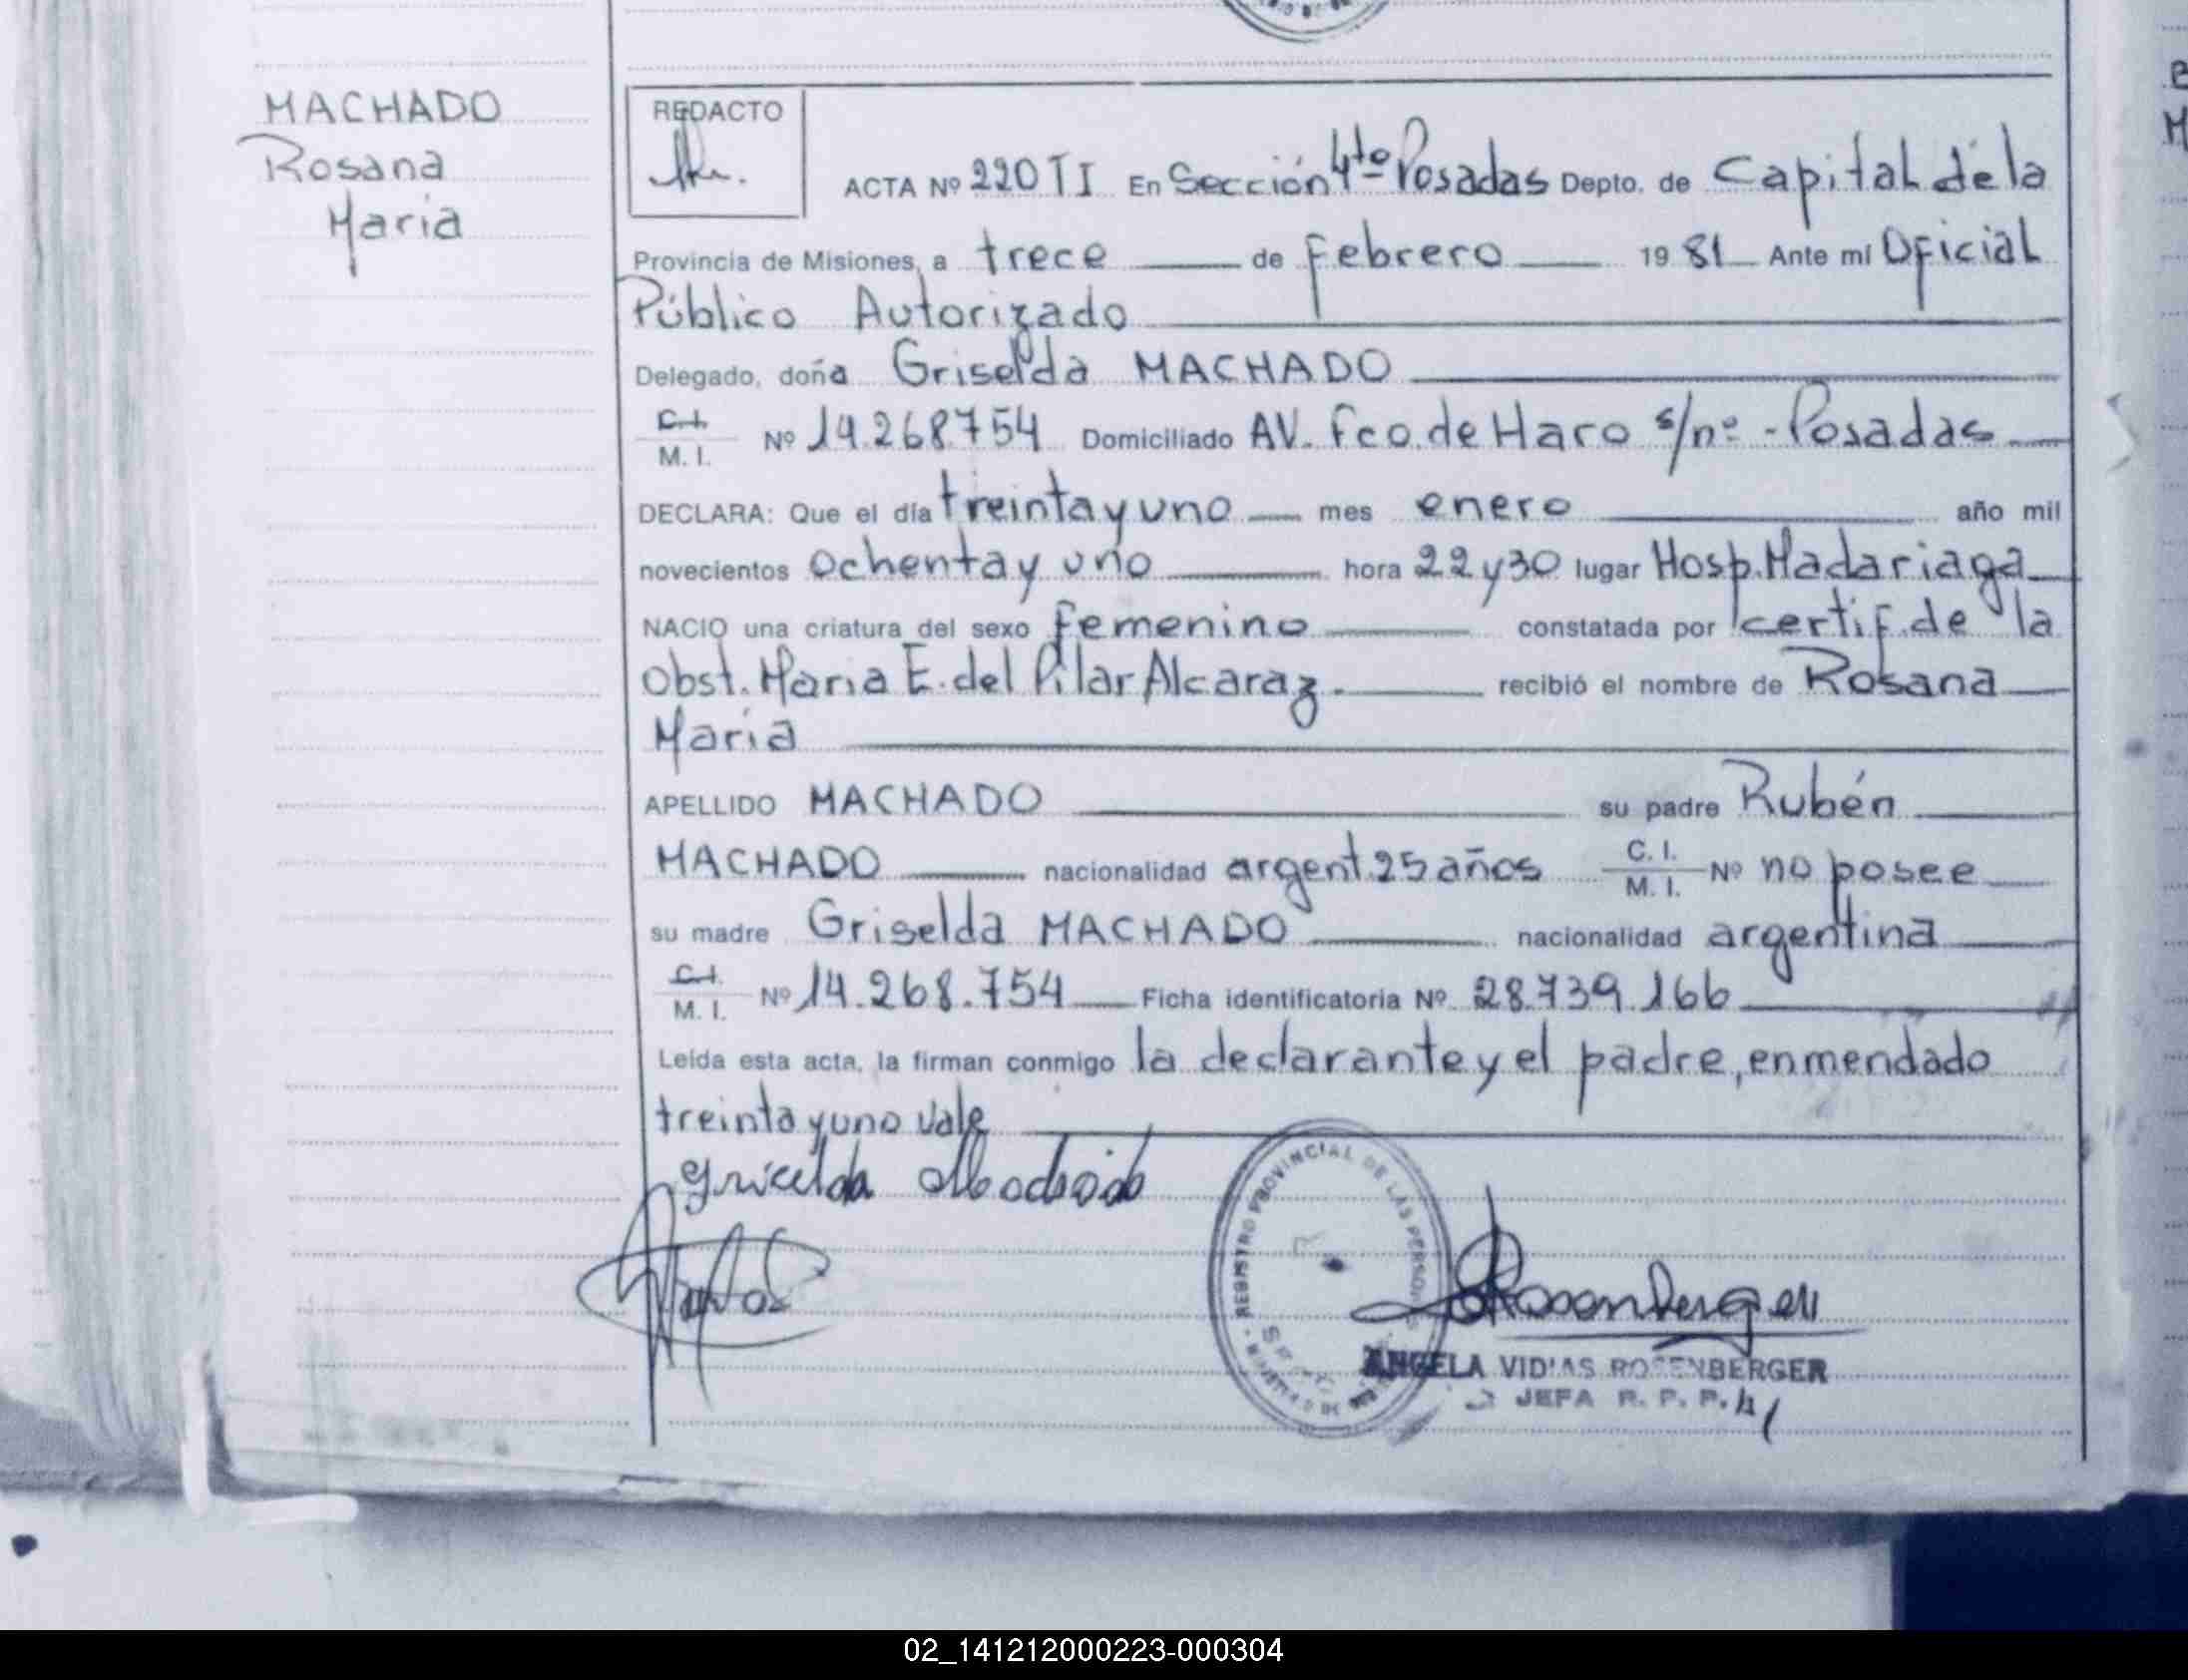 MACHADO
Rosana
Maria
REDACTO
ACTA Nº 220 TI En Sección 4to Posadas Depto. de Capital de la
Provincia de Misiones, a trece de Febrero 1981 Ante mí Oficial
Público Autorizado
Delegado, doña Griselda MACHADO
C.I.
M. I. Nº 14.268.754 Domiciliado AV. Fco. de Haro s/nº - Posadas
DECLARA: Que el día treinta y uno mes enero año mil
novecientos ochenta y uno hora 22 y 30 lugar Hosp. Madariaga
NACIO una criatura del sexo femenino constatada por certif. de la
Obst. Maria E. del Pilar Alcaraz. recibió el nombre de Rosana
Maria
APELLIDO MACHADO su padre Rubén
MACHADO nacionalidad argent. 25 años C. I.
M. I. Nº no posee
su madre Griselda MACHADO nacionalidad argentina
C.I.
M. I. Nº 14.268.754 Ficha identificatoria Nº 28.739.166
Leída esta acta, la firman conmigo la declarante y el padre, enmendado
treinta y uno vale
Gricelda Machado
REGISTRO PROVINCIAL DE LAS PERSONAS
Rosenberger
ANGELA VIDIAS ROSENBERGER
JEFA R. P. P.
02_141212000223-000304